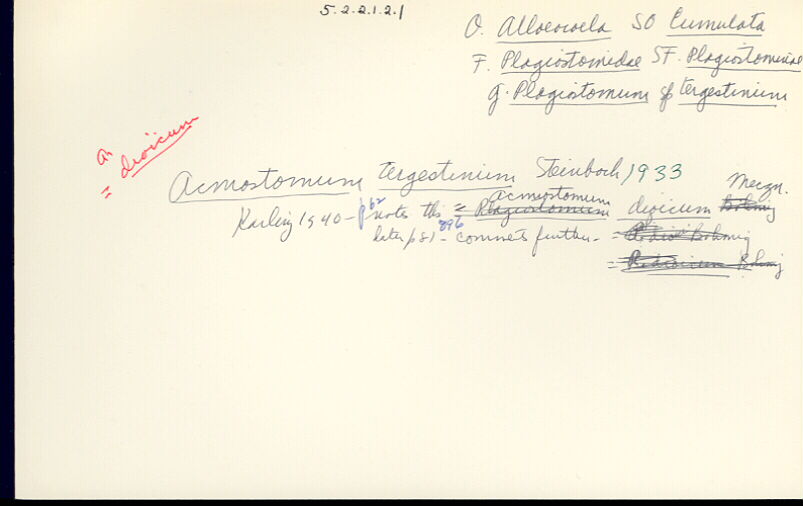 5.2.2.1.2.1
O. Alloeocoela SO Cumulata
F. Plagiostomidae SF. Plagiostominae
g. Plagiostomum sp tergestinum
= dioicum
Acmostomum tergestinum Steinbock 1933
acmostomum Meczn.
Karling 1940 - p 62 notes this = Plagiostomum dioicum Böhmig
896
later p 81 - comments further - = P. dioic Böhmig
= P. dioicum Böhmig